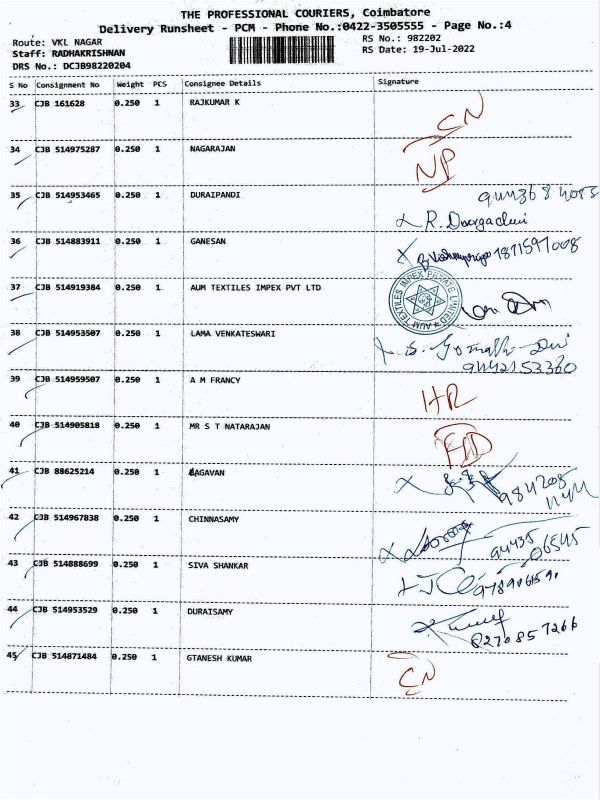 THE PROFESSIONAL COURIERS, Coimbatore
Delivery Runsheet - PCM - Phone No.:0422-3505555 - Page No.:4
Route: VKL NAGAR
RS No.: 982202
Staff: RADHAKRISHNAN
RS Date: 19-Jul-2022
DRS No.: DCJB98220204
S No Consignment No Weight PCS Consignee Details Signature
33 CJB 161628 0.250 1 RAJKUMAR K CN
34 CJB 514975287 0.250 1 NAGARAJAN NP
35 CJB 514953465 0.250 1 DURAIPANDI
R. Durgadevi
36 CJB 514883911 0.250 1 GANESAN
37 CJB 514919384 0.250 1 AUM TEXTILES IMPEX PVT LTD
AUM TEXTILES IMPEX PRIVATE LIMITED
38 CJB 514953507 0.250 1 LAMA VENKATESWARI S. Gomathi Devi
9442153360
39 CJB 514959507 0.250 1 A M FRANCY
40 CJB 514905818 0.250 1 MR S T NATARAJAN
41 CJB 88625214 0.250 1 BAGAVAN
42 CJB 514967838 0.250 1 CHINNASAMY
94435
06545
43 CJB 514888699 0.250 1 SIVA SHANKAR
44 CJB 514953529 0.250 1 DURAISAMY
45 CJB 514871484 0.250 1 GTANESH KUMAR CN